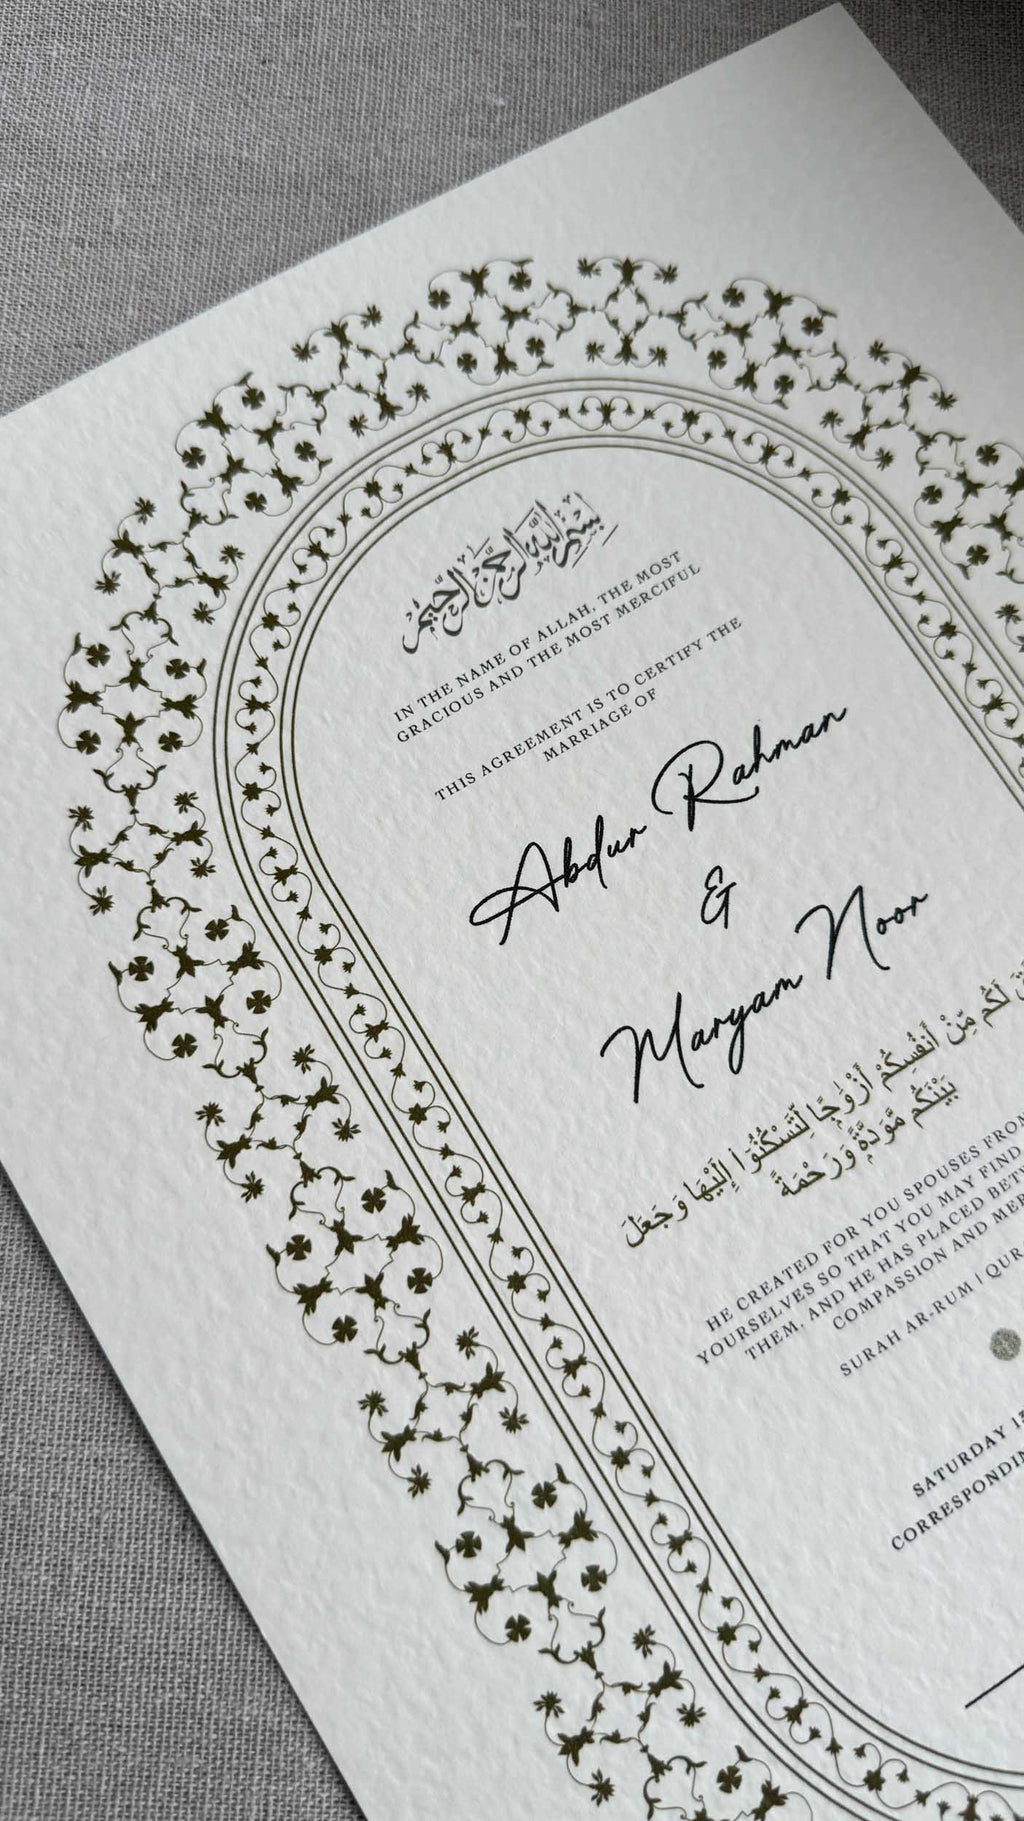 بِسْمِ اللَّهِ الرَّحْمَٰنِ الرَّحِيمِ
IN THE NAME OF ALLAH, THE MOST
GRACIOUS AND THE MOST MERCIFUL
THIS AGREEMENT IS TO CERTIFY THE
MARRIAGE OF
Abdur Rahman
&
Maryam Noor
لَكُم مِّنْ أَنفُسِكُمْ أَزْوَٰجًا لِّتَسْكُنُوٓا۟ إِلَيْهَا وَجَعَلَ
بَيْنَكُم مَّوَدَّةً وَرَحْمَةً
HE CREATED FOR YOU SPOUSES FROM
YOURSELVES SO THAT YOU MAY FIND
THEM, AND HE HAS PLACED
COMPASSION AND
SURAH AR-RUM |
SATURDAY